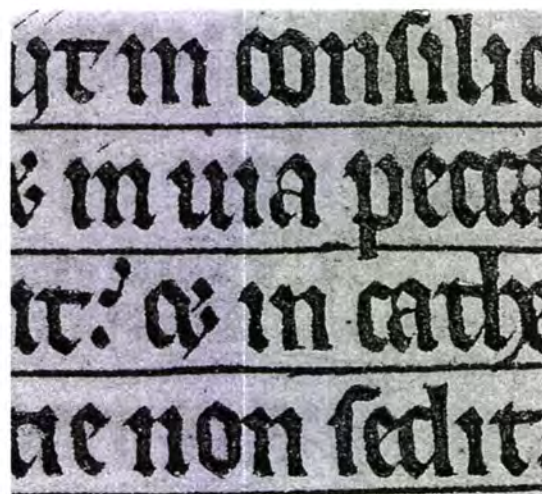 ijt in conſilio
& in uia pecca
it: & in cathe
tie non ſedit.